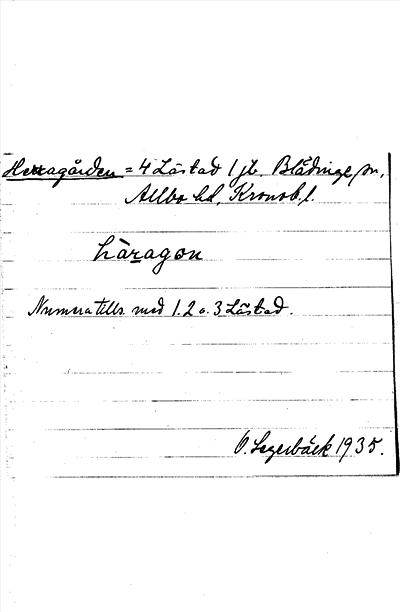 Herragården = 4 Låstad 1 jb. Blädinge sn,
Allbo hd, Kronob. l.
hàragon
Numera tills. med 1. 2 o. 3 Låstad.
O. Segerbäck 1935.